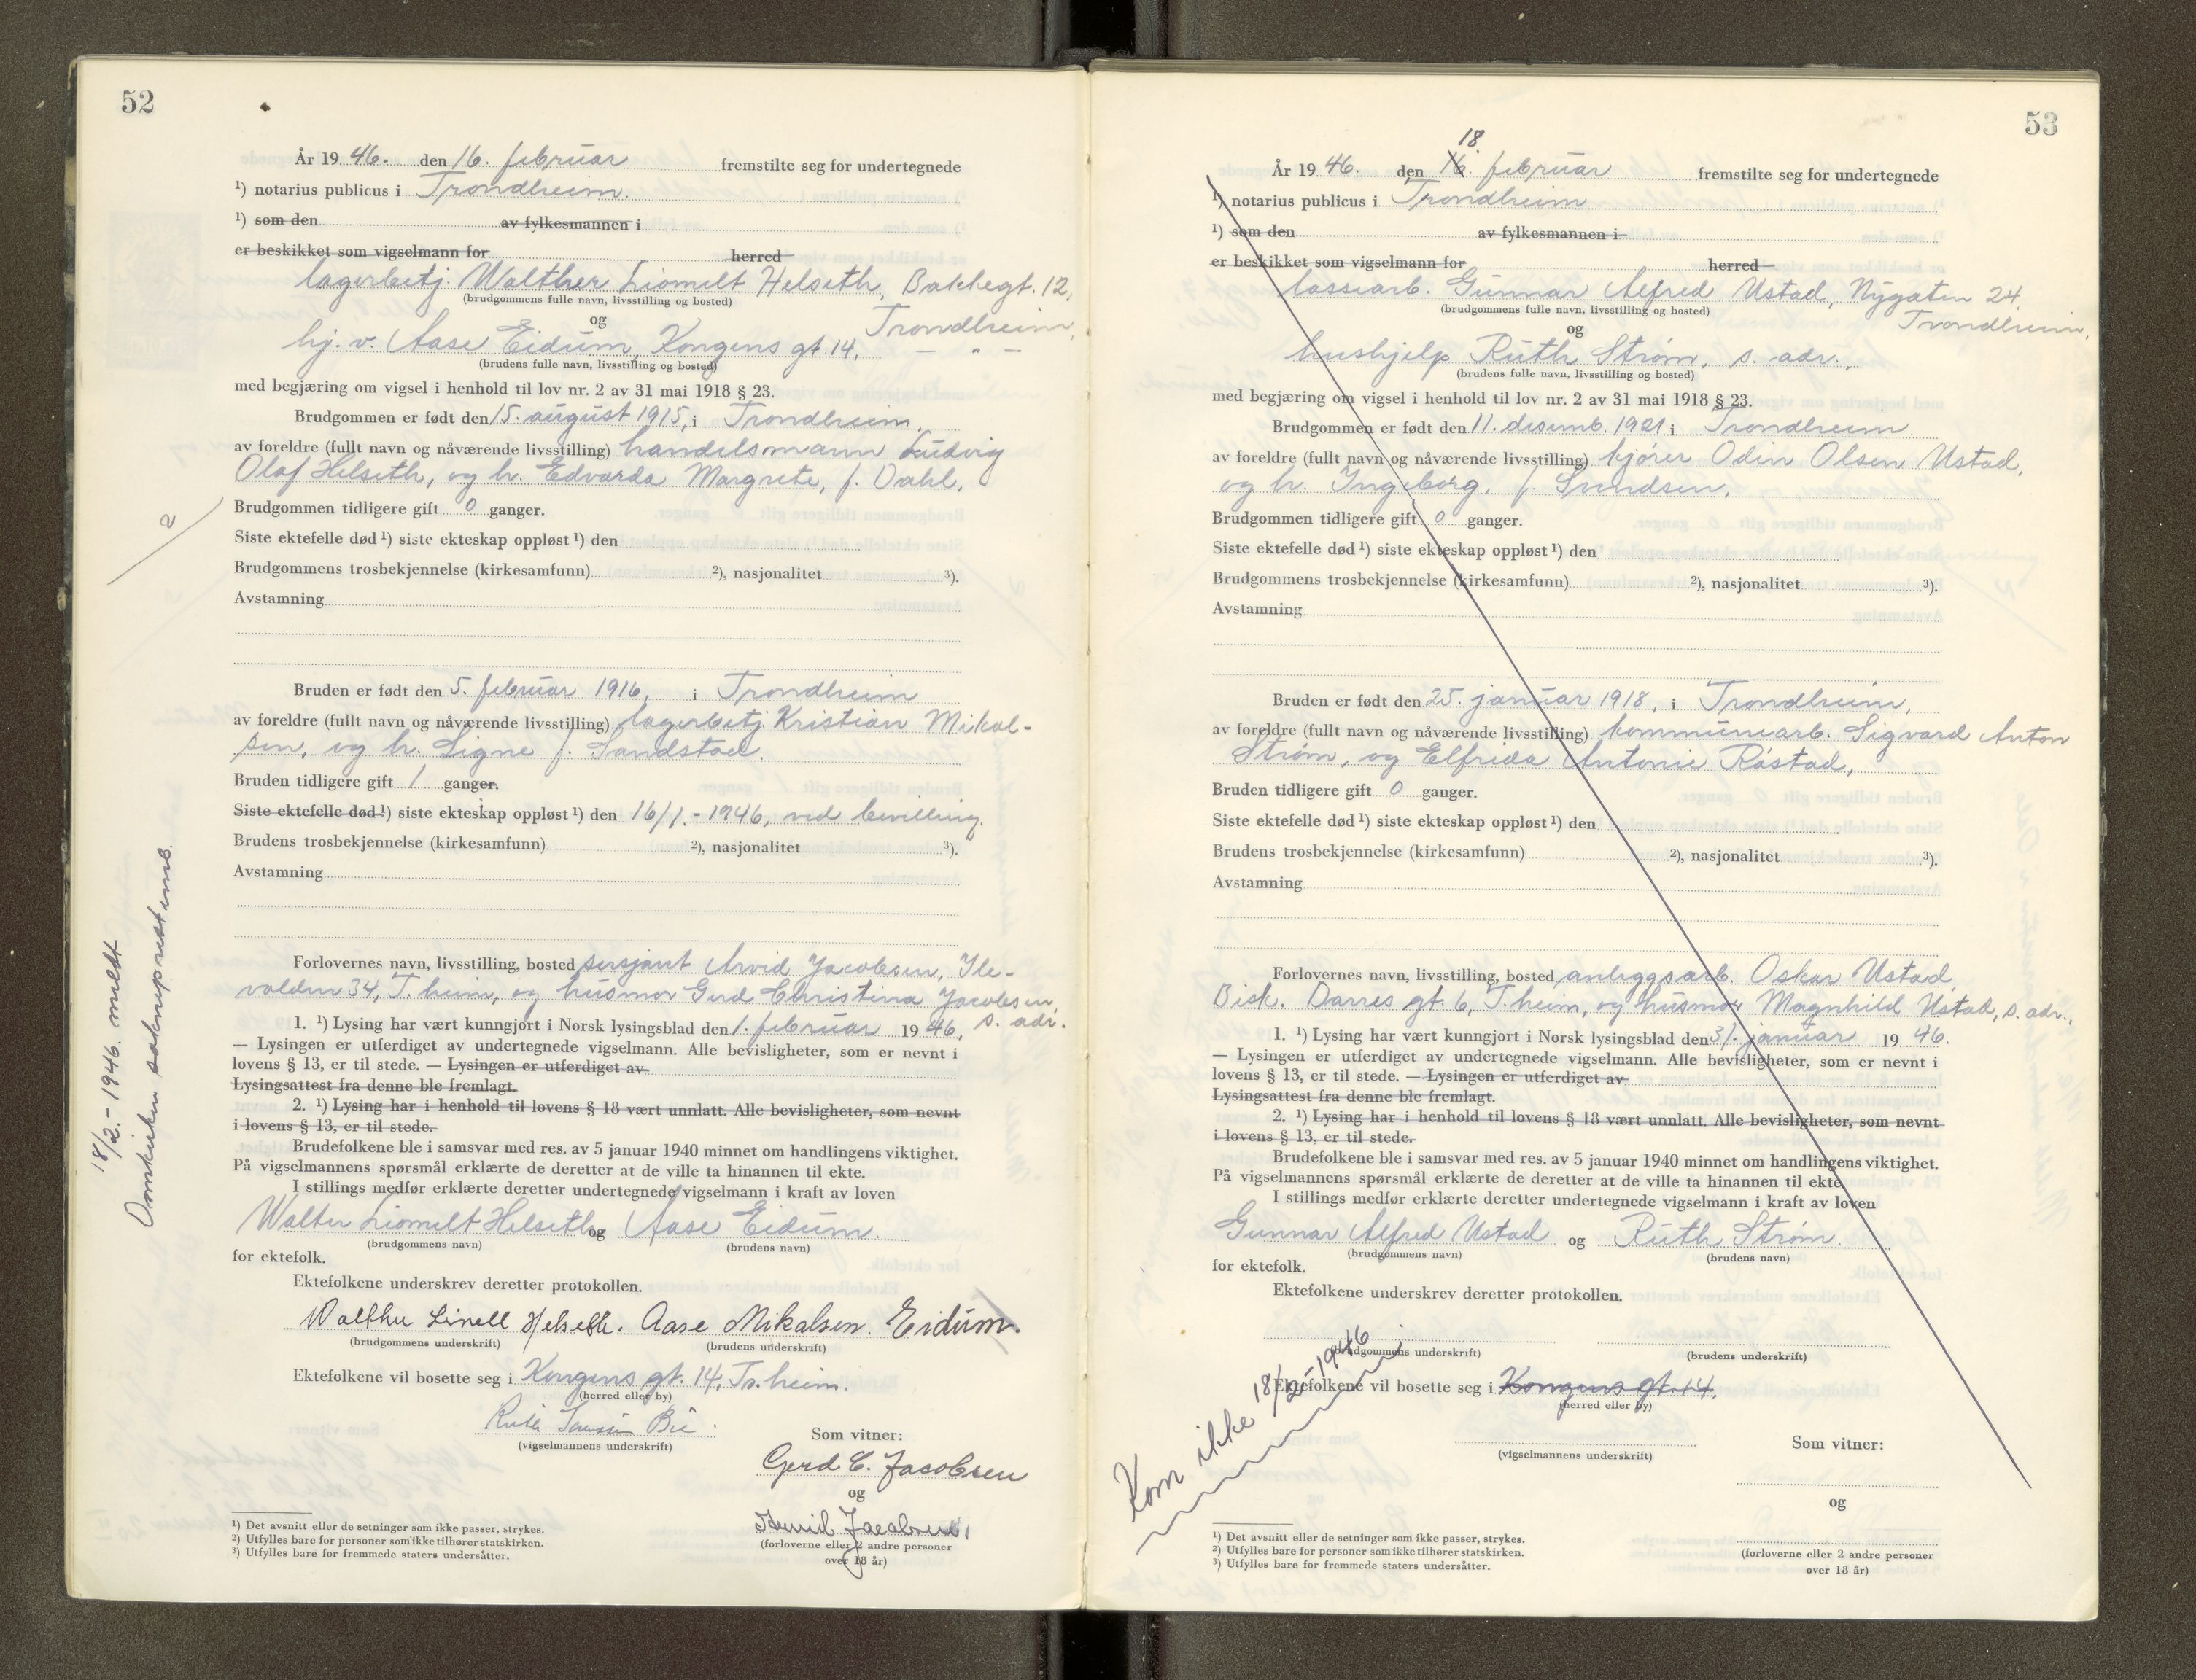 52
År 19 46. den 16. februar fremstilte seg for undertegnede
1) notarius publicus i Trondheim.
1) som den av fylkesmannen i
er beskikket som vigselmann for herred
lagerbetj. Walther Liomilt Helseth, Bakkegt. 12,
(brudgommens fulle navn, livsstilling og bosted)
og Trondheim,
hj. v. Aase Eidum, Kongens gt 14, — " —
(brudens fulle navn, livsstilling og bosted)
med begjæring om vigsel i henhold til lov nr. 2 av 31 mai 1918 § 23.
Brudgommen er født den 15. august 1915, i Trondheim,
av foreldre (fullt navn og nåværende livsstilling) handelsmann Ludvig
Olaf Helseth, og h. Edvarda Margrete, f. Dahl.
Brudgommen tidligere gift 0 ganger.
2
Siste ektefelle død 1) siste ekteskap oppløst 1) den
Brudgommens trosbekjennelse (kirkesamfunn) 2), nasjonalitet 3).
Avstamning
Bruden er født den 5. februar 1916, i Trondheim
av foreldre (fullt navn og nåværende livsstilling) lagerbetj. Kristian Mikal-
sen, og h. Signe f. Sandstad.
Bruden tidligere gift 1 ganger.
Siste ektefelle død 1) siste ekteskap oppløst 1) den 16/1.-1946, ved bevilling.
Brudens trosbekjennelse (kirkesamfunn) 2), nasjonalitet 3).
Avstamning
18/2.-1946. meldt
Domkirken sokneprestemb.
Forlovernes navn, livsstilling, bosted sersjant Arvid Jacobsen, Ile-
volden 34, T.heim, og husmor Gerd Christina Jacobsen,
s. adr.
1. 1) Lysing har vært kunngjort i Norsk lysingsblad den 1. februar 19 46,
— Lysingen er utferdiget av undertegnede vigselmann. Alle bevisligheter, som er nevnt i
lovens § 13, er til stede. — Lysingen er utferdiget av
Lysingsattest fra denne ble fremlagt.
2. 1) Lysing har i henhold til lovens § 18 vært unnlatt. Alle bevisligheter, som nevnt
i lovens § 13, er til stede.
Brudefolkene ble i samsvar med res. av 5 januar 1940 minnet om handlingens viktighet.
På vigselmannens spørsmål erklærte de deretter at de ville ta hinannen til ekte.
I stillings medfør erklærte deretter undertegnede vigselmann i kraft av loven
Walter Liomilt Helseth og Aase Eidum.
(brudgommens navn) (brudens navn)
for ektefolk.
Ektefolkene underskrev deretter protokollen.
Walther Helseth. Aase Mikalsen. Eidum.
(brudgommens underskrift) (brudens underskrift)
Ektefolkene vil bosette seg i Kongens gt. 14, Tr.heim.
(herred eller by)
Bie
(vigselmannens underskrift)
Som vitner:
Gerd C. Jacobsen
og
Jacobsen.
(forloverne eller 2 andre personer
over 18 år)
1) Det avsnitt eller de setninger som ikke passer, strykes.
2) Utfylles bare for personer som ikke tilhører statskirken.
3) Utfylles bare for fremmede staters undersåtter.
53
18
År 19 46. den 16. februar fremstilte seg for undertegnede
1) notarius publicus i Trondheim
1) som den av fylkesmannen i
er beskikket som vigselmann for herred
lassearb. Gunnar Alfred Ustad, Nygaten 24,
(brudgommens fulle navn, livsstilling og bosted)
og Trondheim,
hushjelp Ruth Strøm, s. adr.,
(brudens fulle navn, livsstilling og bosted)
med begjæring om vigsel i henhold til lov nr. 2 av 31 mai 1918 § 23.
Brudgommen er født den 11. desemb. 1921 i Trondheim.
av foreldre (fullt navn og nåværende livsstilling) kjører Odin Olsen Ustad,
og h. Ingeborg, f. Svendsen,
Brudgommen tidligere gift 0 ganger.
Siste ektefelle død 1) siste ekteskap oppløst 1) den
Brudgommens trosbekjennelse (kirkesamfunn) 2), nasjonalitet 3).
Avstamning
Bruden er født den 25. januar 1918, i Trondheim,
av foreldre (fullt navn og nåværende livsstilling) kommunearb. Sigvard Anton
Strøm, og Elfrida Antonie Råstad,
Bruden tidligere gift 0 ganger.
Siste ektefelle død 1) siste ekteskap oppløst 1) den
Brudens trosbekjennelse (kirkesamfunn) 2), nasjonalitet 3).
Avstamning
Forlovernes navn, livsstilling, bosted anleggsarb. Oskar Ustad,
Bisk. Darres gt. 6, T.heim, og husmor Magnhild Ustad, s. adr.,
1. 1) Lysing har vært kunngjort i Norsk lysingsblad den 31. januar 19 46.
— Lysingen er utferdiget av undertegnede vigselmann. Alle bevisligheter, som er nevnt i
lovens § 13, er til stede. — Lysingen er utferdiget av
Lysingsattest fra denne ble fremlagt.
2. 1) Lysing har i henhold til lovens § 18 vært unnlatt. Alle bevisligheter, som nevnt
i lovens § 13, er til stede.
Brudefolkene ble i samsvar med res. av 5 januar 1940 minnet om handlingens viktighet.
På vigselmannens spørsmål erklærte de deretter at de ville ta hinannen til ekte.
I stillings medfør erklærte deretter undertegnede vigselmann i kraft av loven
Gunnar Alfred Ustad og Ruth Strøm.
(brudgommens navn) (brudens navn)
for ektefolk.
Ektefolkene underskrev deretter protokollen.
(brudgommens underskrift) (brudens underskrift)
Ektefolkene vil bosette seg i Kongens gt. 14,
(herred eller by)
Kom ikke 18/2-1946
(vigselmannens underskrift)
Som vitner:
og
(forloverne eller 2 andre personer
over 18 år)
1) Det avsnitt eller de setninger som ikke passer, strykes.
2) Utfylles bare for personer som ikke tilhører statskirken.
3) Utfylles bare for fremmede staters undersåtter.